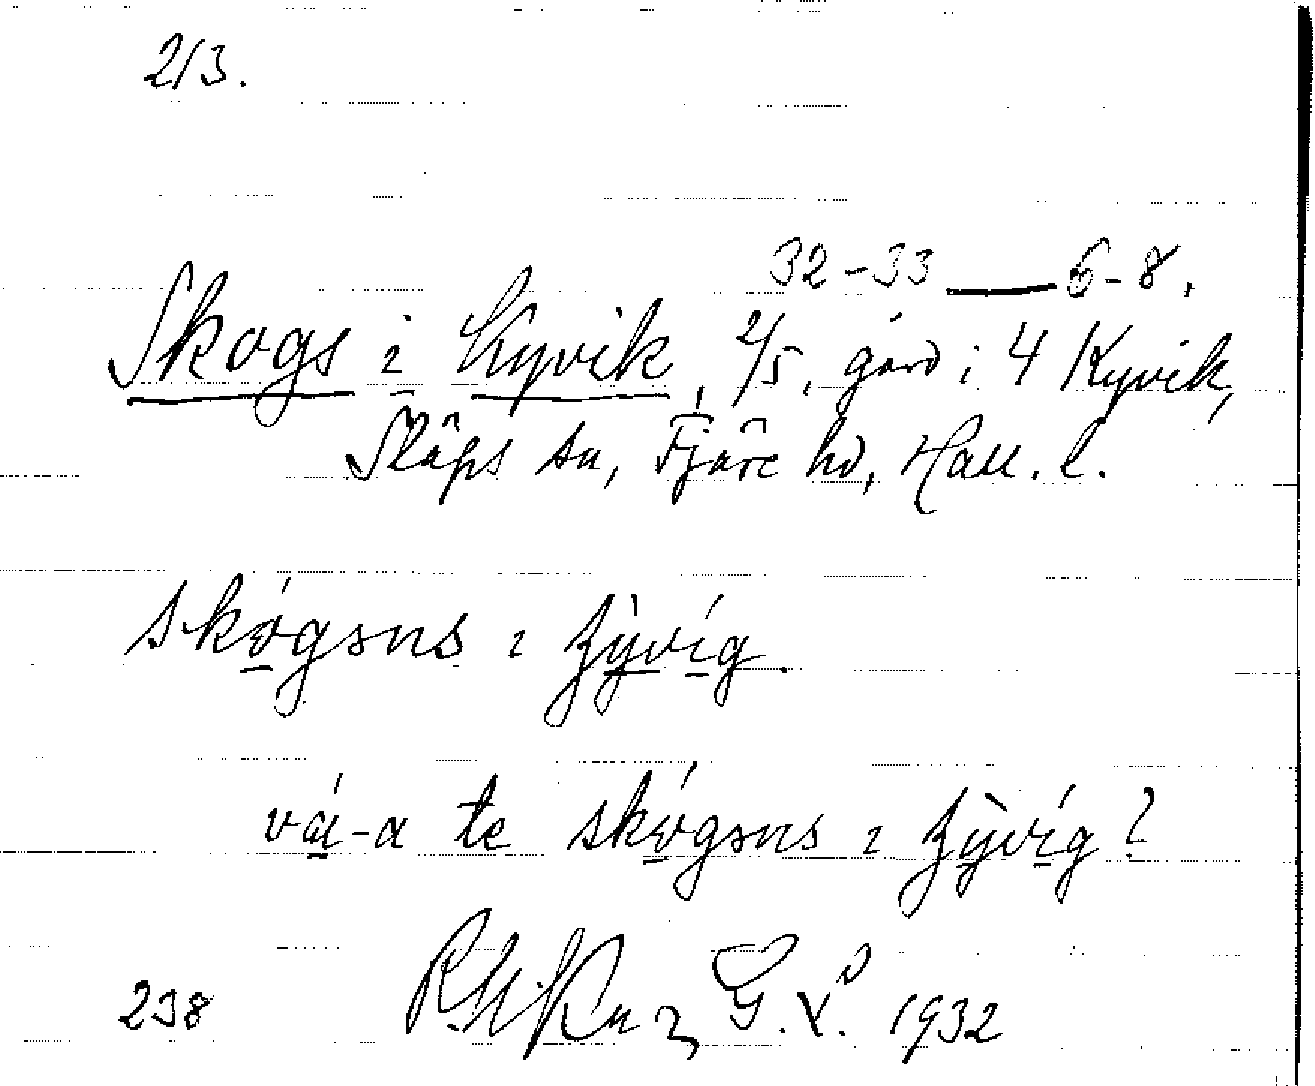 213.
32-33 — 6-8.
Skogs i Kyvik, 2/5, gård i 4 Kyvik,
Släps sn, Fjäre hd, Hall. l.
skógəns ɩ ʒỳvíg.
vá-a te skógəns ɩ ʒỳvíg?
238 G. 1932